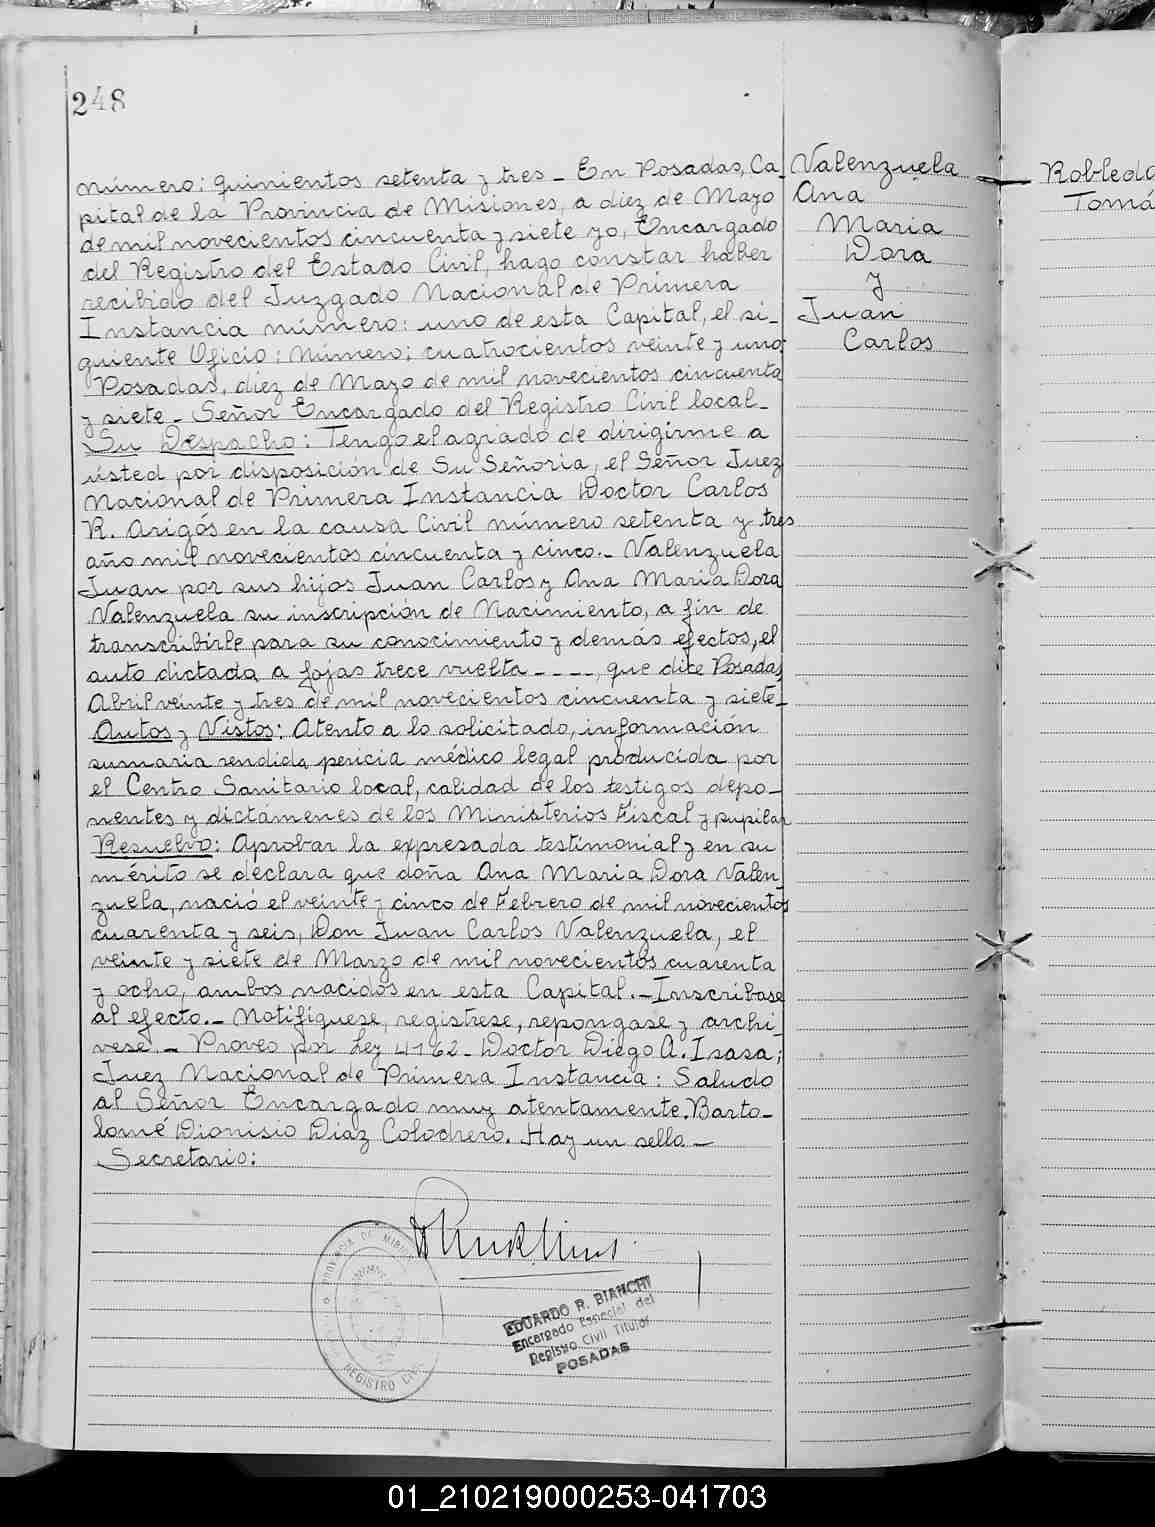 248
Número: quinientos setenta y tres - En Posadas, Ca-
pital de la Provincia de Misiones, a diez de Mayo
de mil novecientos cincuenta y siete yo, Encargado
del Registro del Estado Civil, hago constar haber
recibido del Juzgado Nacional de Primera
Instancia número: uno de esta Capital, el si-
guiente Oficio: Número: cuatrocientos veinte y uno:
Posadas, diez de Mayo de mil novecientos cincuenta
y siete - Señor Encargado del Registro Civil local -
Su Despacho: Tengo el agrado de dirigirme a
usted por disposición de Su Señoria, el Señor Juez
Nacional de Primera Instancia Doctor Carlos
R. Arigós en la causa Civil número setenta y tres
año mil novecientos cincuenta y cinco.- Valenzuela
Juan por sus hijos Juan Carlos y Ana Maria Dora
Valenzuela su inscripción de Nacimiento, a fin de
transcribirle para su conocimiento y demás efectos, el
auto dictado a fojas trece vuelta - - - -, que dice Posadas
Abril veinte y tres de mil novecientos cincuenta y siete -
Autos y Vistos: Atento a lo solicitado, información
sumaria rendida, pericia médico legal producida por
el Centro Sanitario local, calidad de los testigos depo-
nentes y dictámenes de los Ministerios Fiscal y pupilar
Resuelvo: Aprobar la expresada testimonial y en su
mérito se declara que doña Ana Maria Dora Valen-
zuela, nació el veinte y cinco de Febrero de mil novecientos
cuarenta y seis, Don Juan Carlos Valenzuela, el
veinte y siete de Marzo de mil novecientos cuarenta
y ocho, ambos nacidos en esta Capital.- Inscribase
al efecto.- Notifíquese, registrese, repongase y archi-
vese.- Proveo por Ley 4162- Doctor Diego A. Isasa;
Juez Nacional de Primera Instancia: Saludo
al Señor Encargado muy atentamente. Barto-
lomé Dionisio Diaz Colodrero. Hay un sello -
Secretario:
Valenzuela
Ana
Maria
Dora
y
Juan
Carlos
Robledo
Tomá
PROVINCIA DE MISIONES
REGISTRO CIVIL
EDUARDO R. BIANCHI
Encargado Especial del
Registro Civil Titular
POSADAS
01_210219000253-041703